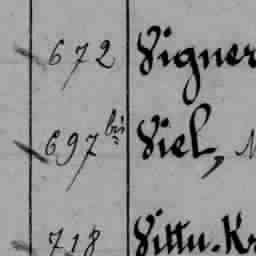 672 Vigner
697 bis Viel,
718 Vittu. Kr